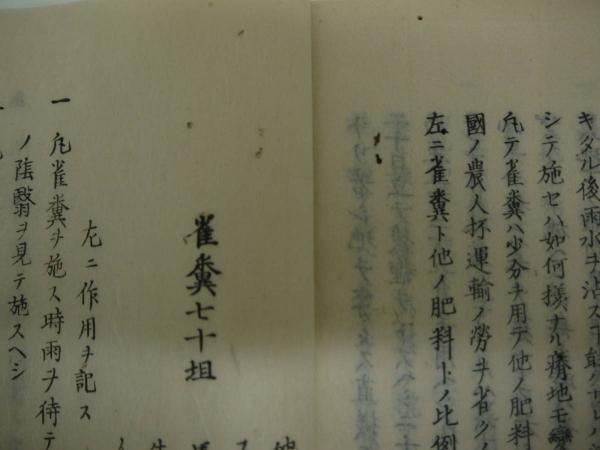 キタル後雨水ヲ沾ス
シテ施セハ如何様ナル瘠地モ変
凡テ雀糞ハ少分ヲ用テ他ノ肥料
國ノ農人杯運輸ノ勞ヲ省クノ
左ニ雀糞ト他ノ肥料トノ比例
雀糞七十坦
左ニ作用ヲ記ス
一 凡雀糞ヲ施ス時雨ヲ待テ
ノ陰翳ヲ見テ施スヘシ
一